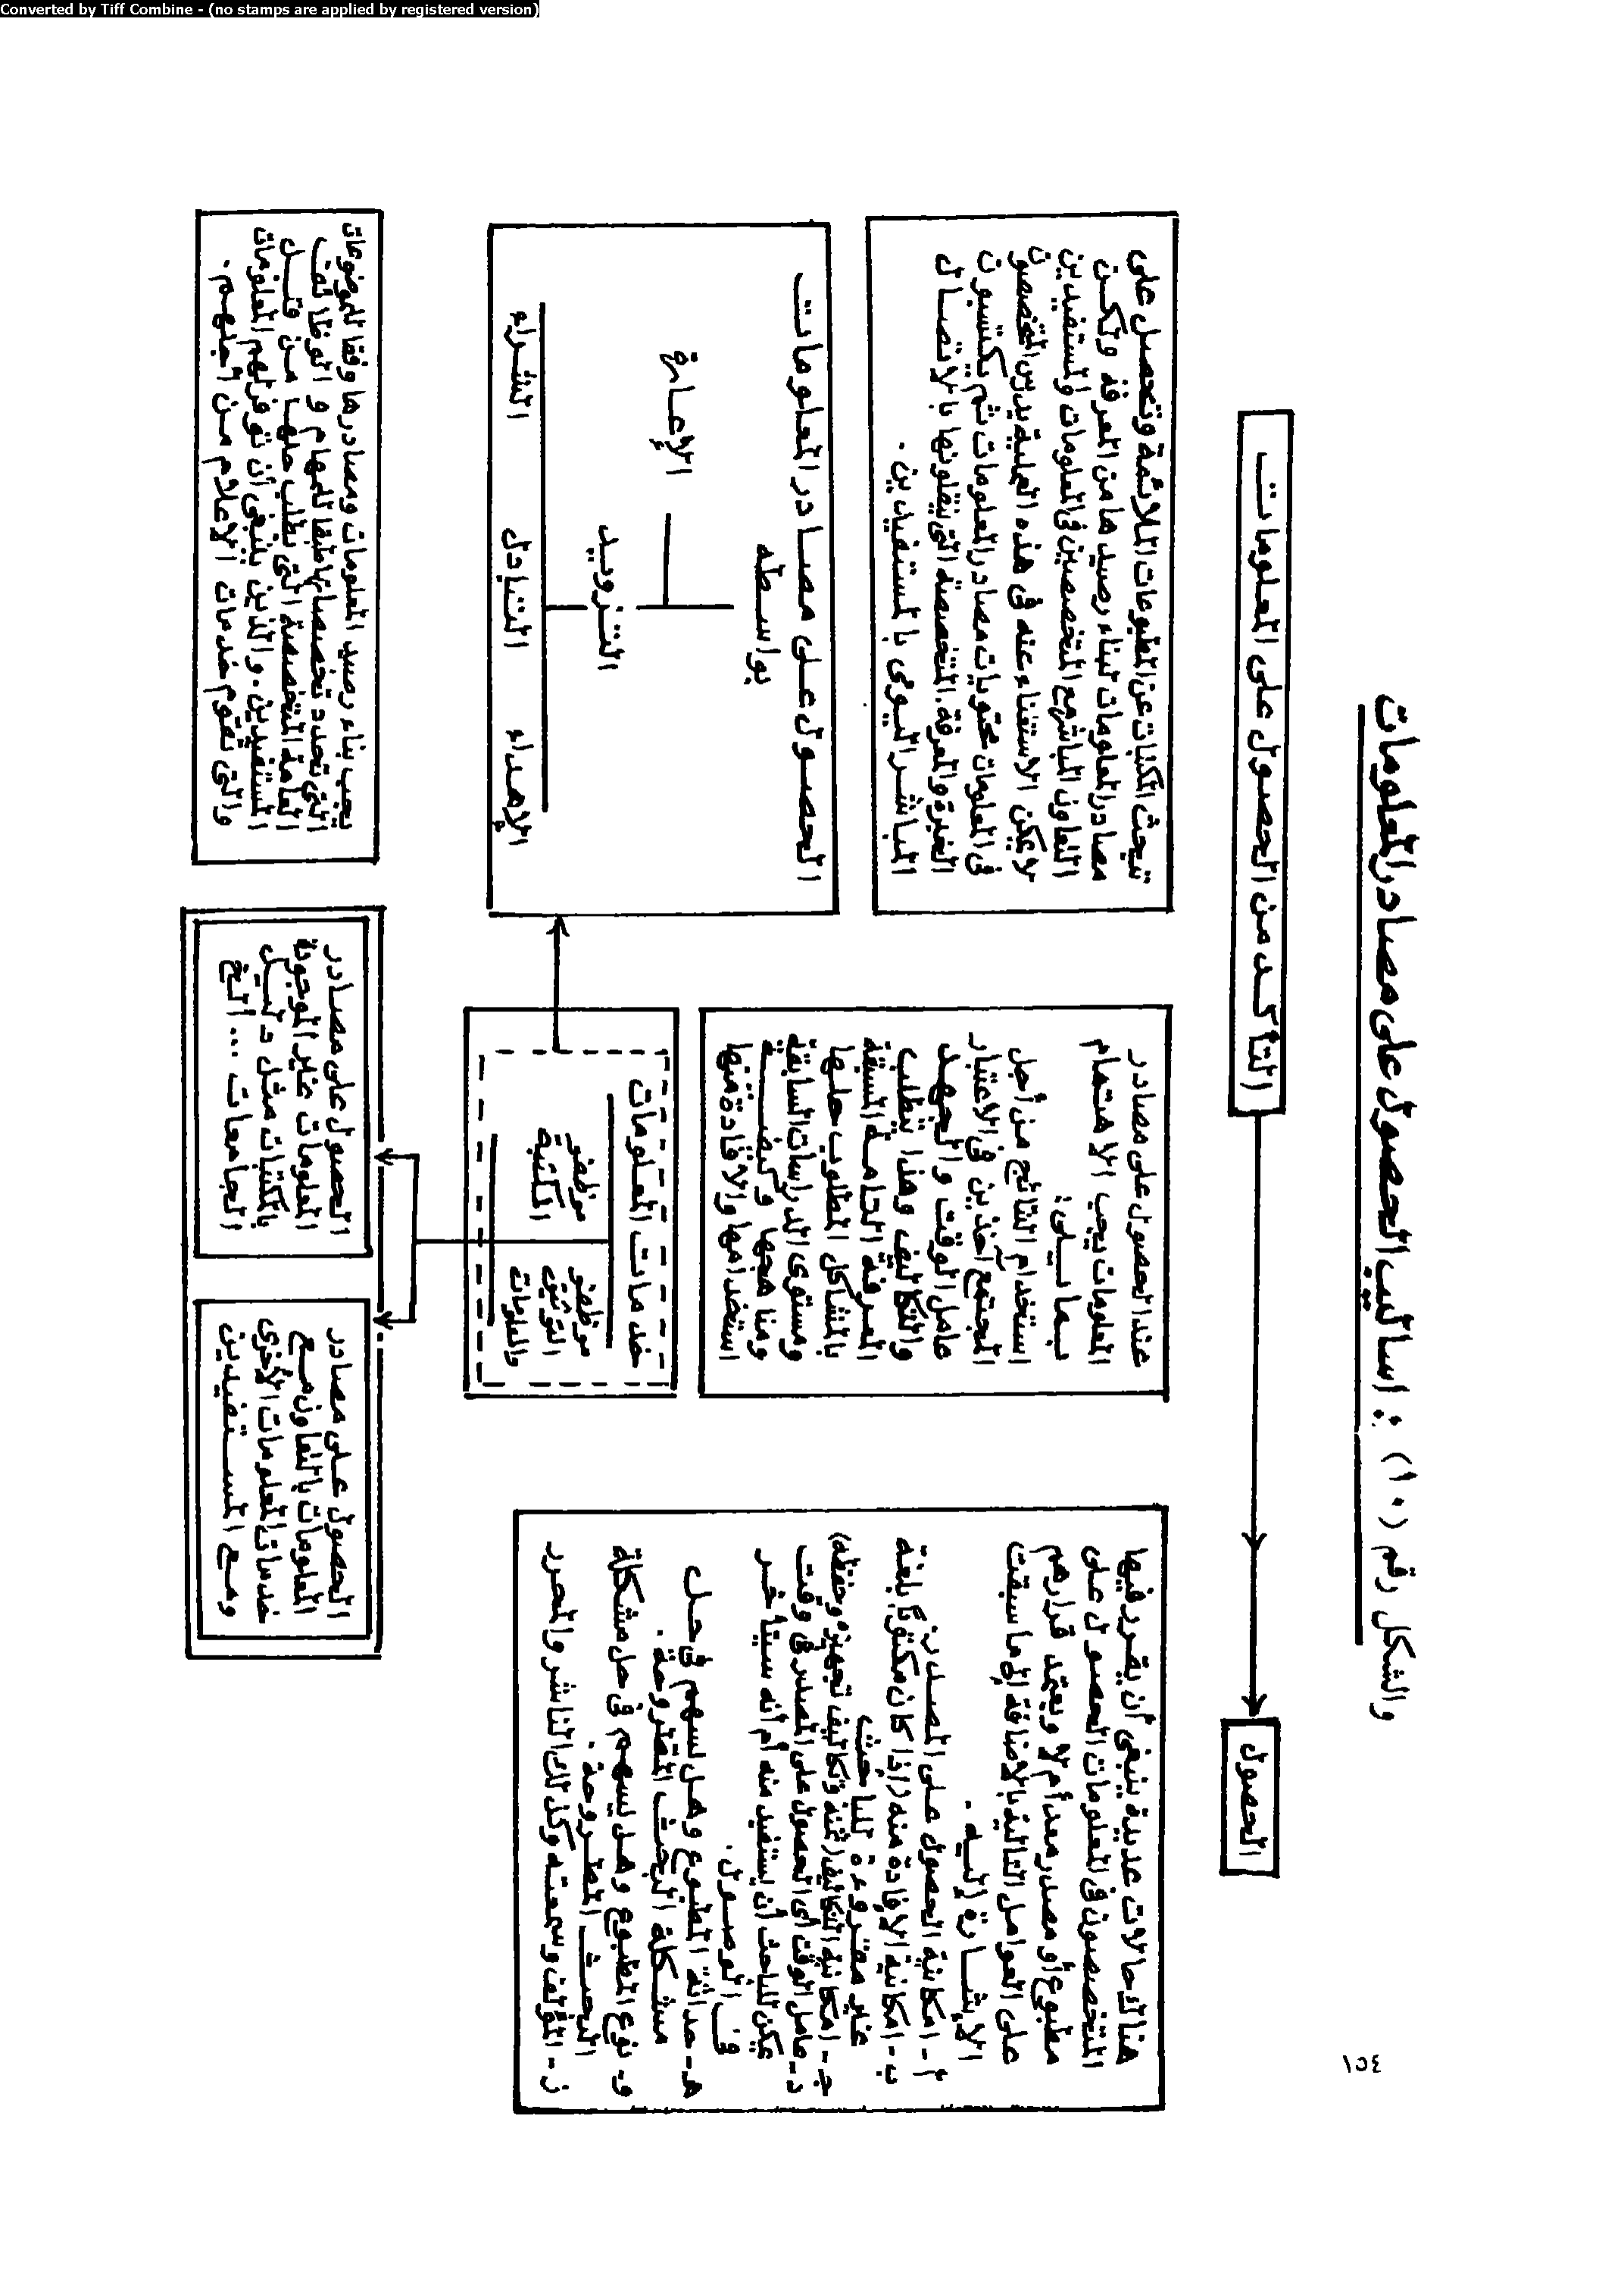 Converted by Tiff Combine - (no stamps are applied by registered version)
والشكل رقم (١٠) : أساليب الحصول على مصادر المعلومات
الحصول
التأكد من الحصول على المعلومات
هناك حالات عديدة ينبغى أن يقرر فيها
المتخصصون فى المعلومات الحصول على
مطبوع أو مصدر معد أم لا ويعتمد قرارهم
على العوامل التالية بالاضافة إلى ما سبقت
الإشارة إليه .
أ - امكانية الحصول على المصدر .
ب - امكانية الإفادة منه (إذا كان مكتوبًا بلغة
غير مقروءة للباحث
جـ - امكانية التكاليف (ثمنه وتكاليف تجهيزه وحفظه)
د - عامل الوقت أى الحصول على المصدر فى وقت
يمكن للباحث أن يستفيد منه أم أنه سيتأخر
فى الوصول .
هـ - حداثة المطبوع وهل يسهم فى حل
مشكلة البحث المطروحة .
و - نوع المطبوع وهل يسهم فى حل مشكلة
البحث المطروحة .
ز - المؤلف وسمعته وكذلك الناشر والمحرر
عند الحصول على مصادر
المعلومات يجب الاهتمام
بما يلى :
استخدام النتائج من أجل
المجتمع آخذين فى الاعتبار
عامل الوقت والجهد
والتكاليف وهذا يتطلب
المعرفة التامة المسبقة
بالمشاكل المطلوب حلها
ومستوى الدراسات السابقة
ومناهجها وكيفية
استخدامها والافادة منها
تبحث المكتبات عن المطبوعات الملائمة وتحصل على
مصادر المعلومات لبناء رصيدها من المعرفة ولكن
التعاون المباشر مع المتخصصين فى المعلومات والمستفيدين
لا يمكن الاستغناء عنه فى هذه العملية يدرس المتخصصون
فى المعلومات محتويات مصادر المعلومات ثم يكتسبون
الخبرة والمعرفة المتخصصة التى ينقلونها بالاتصال
المباشر اليومى بالمستفيدين .
خدمات المعلومات
موظفو
المكتبة
موظفو
التوثيق
والمعلومات
الحصول على مصادر المعلومات
بواسطة
الإعارة
التزويد
الإهداء
التبادل
الشراء
الحصول على مصادر
المعلومات بالتعاون مع
خدمات المعلومات الأخرى
ومع المستفيدين
الحصول على مصادر
المعلومات غير الموجودة
بالمكتبات مثل دليل
الجامعات ... الخ
يجب بناء رصيد المعلومات ومصادرها وفقا للموضوعات
التى تحدد تخصصاتها طبقا للمهام والوظائف
العامة المتخصصة التى يطلب حلها من قبل
المستفيدين . والذين ينبغى أن توفر لهم المعلومات
والتى تقوم خدمات الإعلام من أجلهم .
١٥٤